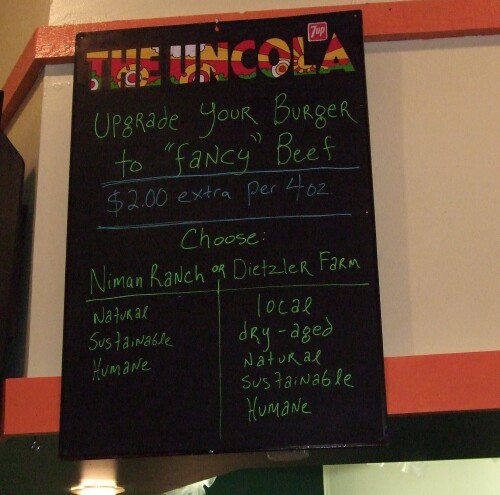 7up
THE UNCOLA
Upgrade Your Burger
to "fancy" Beef
$2.00 extra per 4oz.
Choose:
Niman Ranch or Dietzler Farm
Natural
Sustainable
Humane
local
dry-aged
Natural
Sustainable
Humane